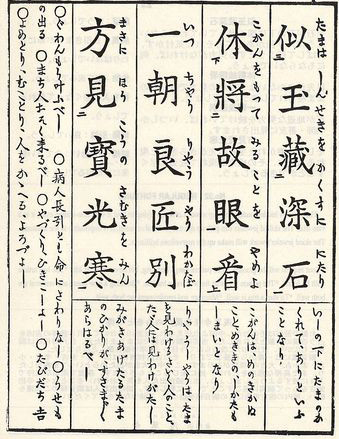 たまは しんせきを かくすに にたり
似玉藏深石
いしの下にたまのか
くれて、ありといふ
ことなり
こがんをもつて みることを やめよ
休將故眼看
こがんはめのきかぬ
ことめききの、しかたも
しまいとなり
いつ ちやう りやう しやう わかたば
一朝良匠別
りやうしやうは、たま
を見わけるさいく人のこと、
た人は見わけがたし
まさに ほう こうの さむきを みん
方見寶光寒
みがきあげたるたま
のひかりが、すさまじく
あらはるべし
叶ふべし ○病人長引とも命にさわりなし ○うせも
の出る ○まち人おそく来るべし ○やづくり、ひきこしよし ○たびだち吉
○よめとり、むことり、人をかゝへる、よろづよし